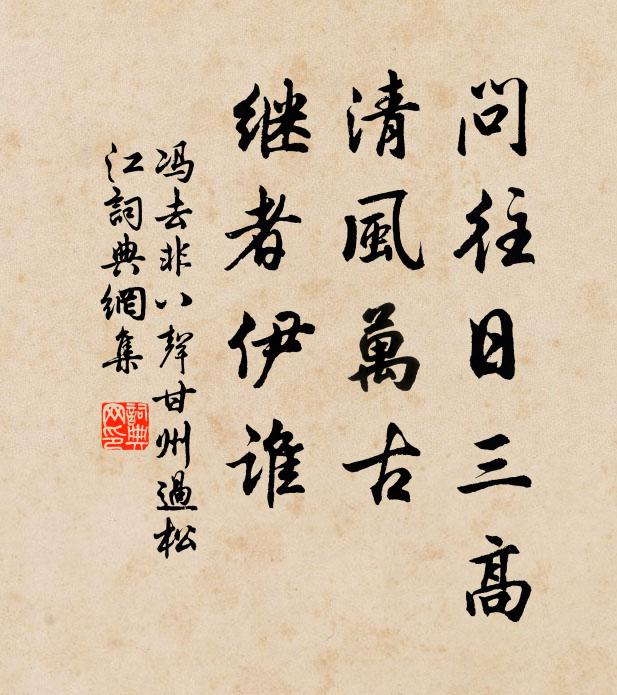 问往日三高
清風萬古
继者伊谁
冯去非八聲甘州過松
江詞典網集
詞典网印